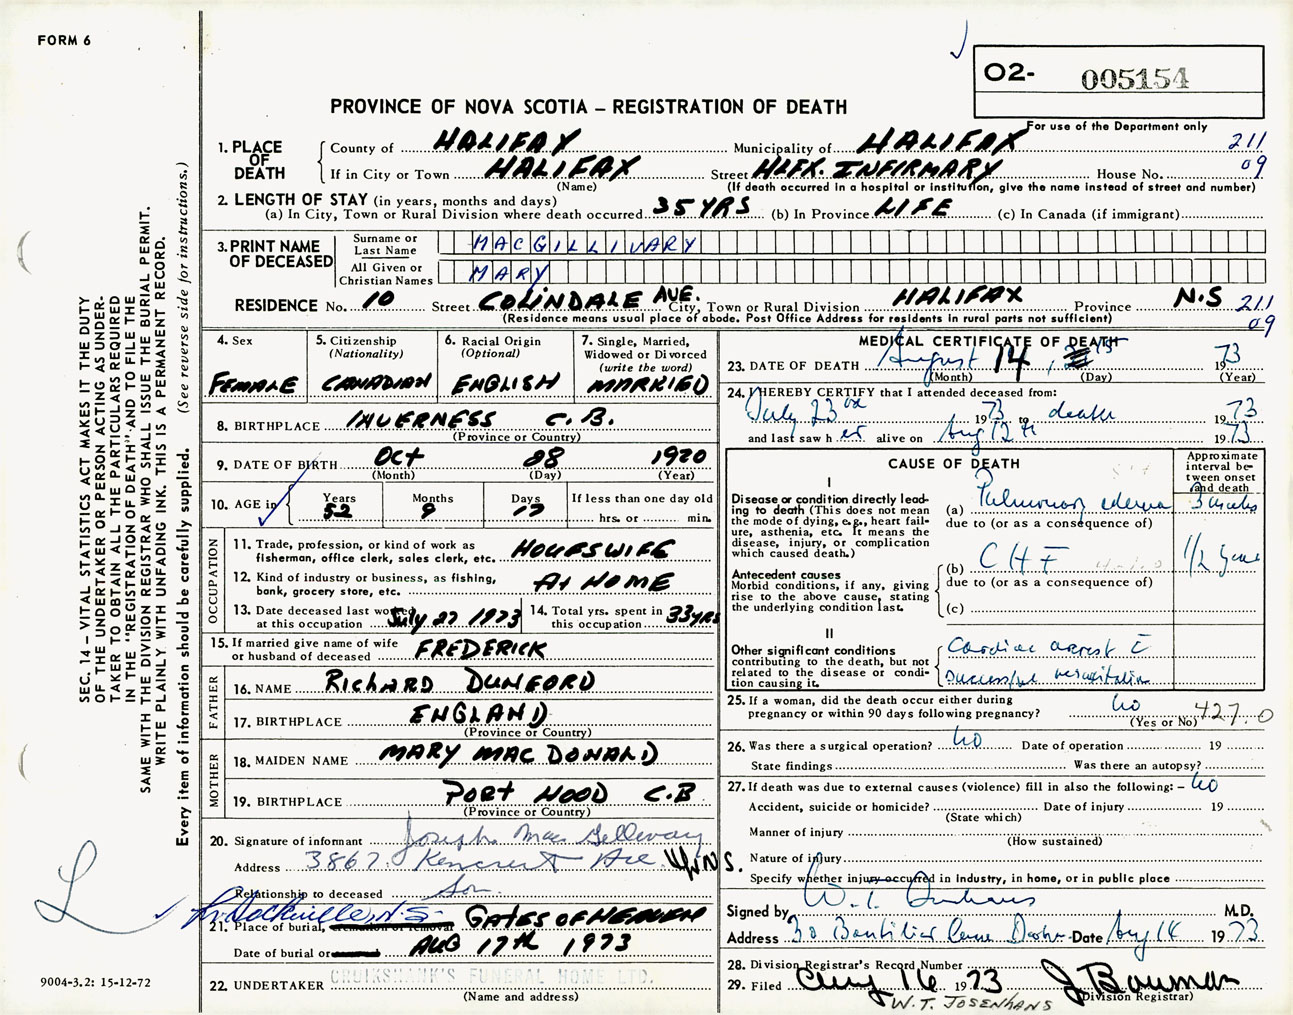 FORM 6
02- 005154
For use of the Department only
PROVINCE OF NOVA SCOTIA – REGISTRATION OF DEATH
1. PLACE OF DEATH
County of HALIFAX Municipality of HALIFAX 211
If in City or Town HALIFAX Street HLFX. INFIRMARY House No. 09
(Name) (If death occurred in a hospital or institution, give the name instead of street and number)
2. LENGTH OF STAY (in years, months and days)
(a) In City, Town or Rural Division where death occurred 35 YRS (b) In Province LIFE (c) In Canada (if immigrant)
3. PRINT NAME OF DECEASED
Surname or Last Name MACGILLIVARY
All Given or Christian Names MARY
RESIDENCE No. 10 Street COLINDALE AVE. City, Town or Rural Division HALIFAX Province N.S 211
(Residence means usual place of abode. Post Office Address for residents in rural parts not sufficient) 09
4. Sex FEMALE
5. Citizenship (Nationality) CANADIAN
6. Racial Origin (Optional) ENGLISH
7. Single, Married, Widowed or Divorced (write the word) MARRIED
8. BIRTHPLACE INVERNESS C.B.
(Province or Country)
9. DATE OF BIRTH Oct 28 1920
(Month) (Day) (Year)
10. AGE in Years 52 Months 9 Days 17 If less than one day old
hrs. or min.
OCCUPATION
11. Trade, profession, or kind of work as fisherman, office clerk, sales clerk, etc. HOUESWIFE
12. Kind of industry or business, as fishing, bank, grocery store, etc. At HOME
13. Date deceased last worked at this occupation July 27 1973
14. Total yrs. spent in this occupation 33 yrs
15. If married give name of wife or husband of deceased FREDERICK
FATHER
16. NAME RichARD DUNFORD
17. BIRTHPLACE ENGLAND
(Province or Country)
MOTHER
18. MAIDEN NAME MARY MAC DONALD
19. BIRTHPLACE PORT HOOD C.B
(Province or Country)
20. Signature of informant Joseph Mac Gillivary
Address 3867 Kencrest Ave N.S.
Relationship to deceased Son.
Sackville, N.S.
21. Place of burial, cremation or removal GATES OF HEAVEN
Date of burial or AUG 17th 1973
22. UNDERTAKER CRUIKSHANK'S FUNERAL HOME LTD.
(Name and address)
MEDICAL CERTIFICATE OF DEATH
23. DATE OF DEATH August 14 1973
(Month) (Day) (Year)
24. I HEREBY CERTIFY that I attended deceased from:
July 23rd 1973 to death 1973
and last saw her alive on Aug 12th 1973
CAUSE OF DEATH
Approximate interval between onset and death
I
Disease or condition directly leading to death (This does not mean the mode of dying, e.g., heart failure, asthenia, etc. It means the disease, injury, or complication which caused death.)
(a) Pulmonary edema 3 weeks
due to (or as a consequence of)
Antecedent causes
Morbid conditions, if any, giving rise to the above cause, stating the underlying condition last.
(b) CHF 1/2 year
due to (or as a consequence of)
(c)
II
Other significant conditions contributing to the death, but not related to the disease or condition causing it.
Cardiac arrest c̄
successful resuscitation
25. If a woman, did the death occur either during pregnancy or within 90 days following pregnancy? No
(Yes or No) 427.0
26. Was there a surgical operation? No Date of operation 19
State findings Was there an autopsy?
27. If death was due to external causes (violence) fill in also the following: – No
Accident, suicide or homicide? Date of injury 19
(State which)
Manner of injury
(How sustained)
Nature of injury
Specify whether injury occurred in industry, in home, or in public place
Signed by W. T. Josenhans M.D.
Address Date Aug 14 1973
28. Division Registrar's Record Number
29. Filed Aug 16 1973 J Bowman
W. T. JOSENHANS (Division Registrar)
SEC. 14 – VITAL STATISTICS ACT MAKES IT THE DUTY
OF THE UNDERTAKER OR PERSON ACTING AS UNDER-
TAKER TO OBTAIN ALL THE PARTICULARS REQUIRED
IN THE "REGISTRATION OF DEATH" AND TO FILE THE
SAME WITH THE DIVISION REGISTRAR WHO SHALL ISSUE THE BURIAL PERMIT.
WRITE PLAINLY WITH UNFADING INK. THIS IS A PERMANENT RECORD.
Every item of information should be carefully supplied. (See reverse side for instructions.)
9004-3.2: 15-12-72